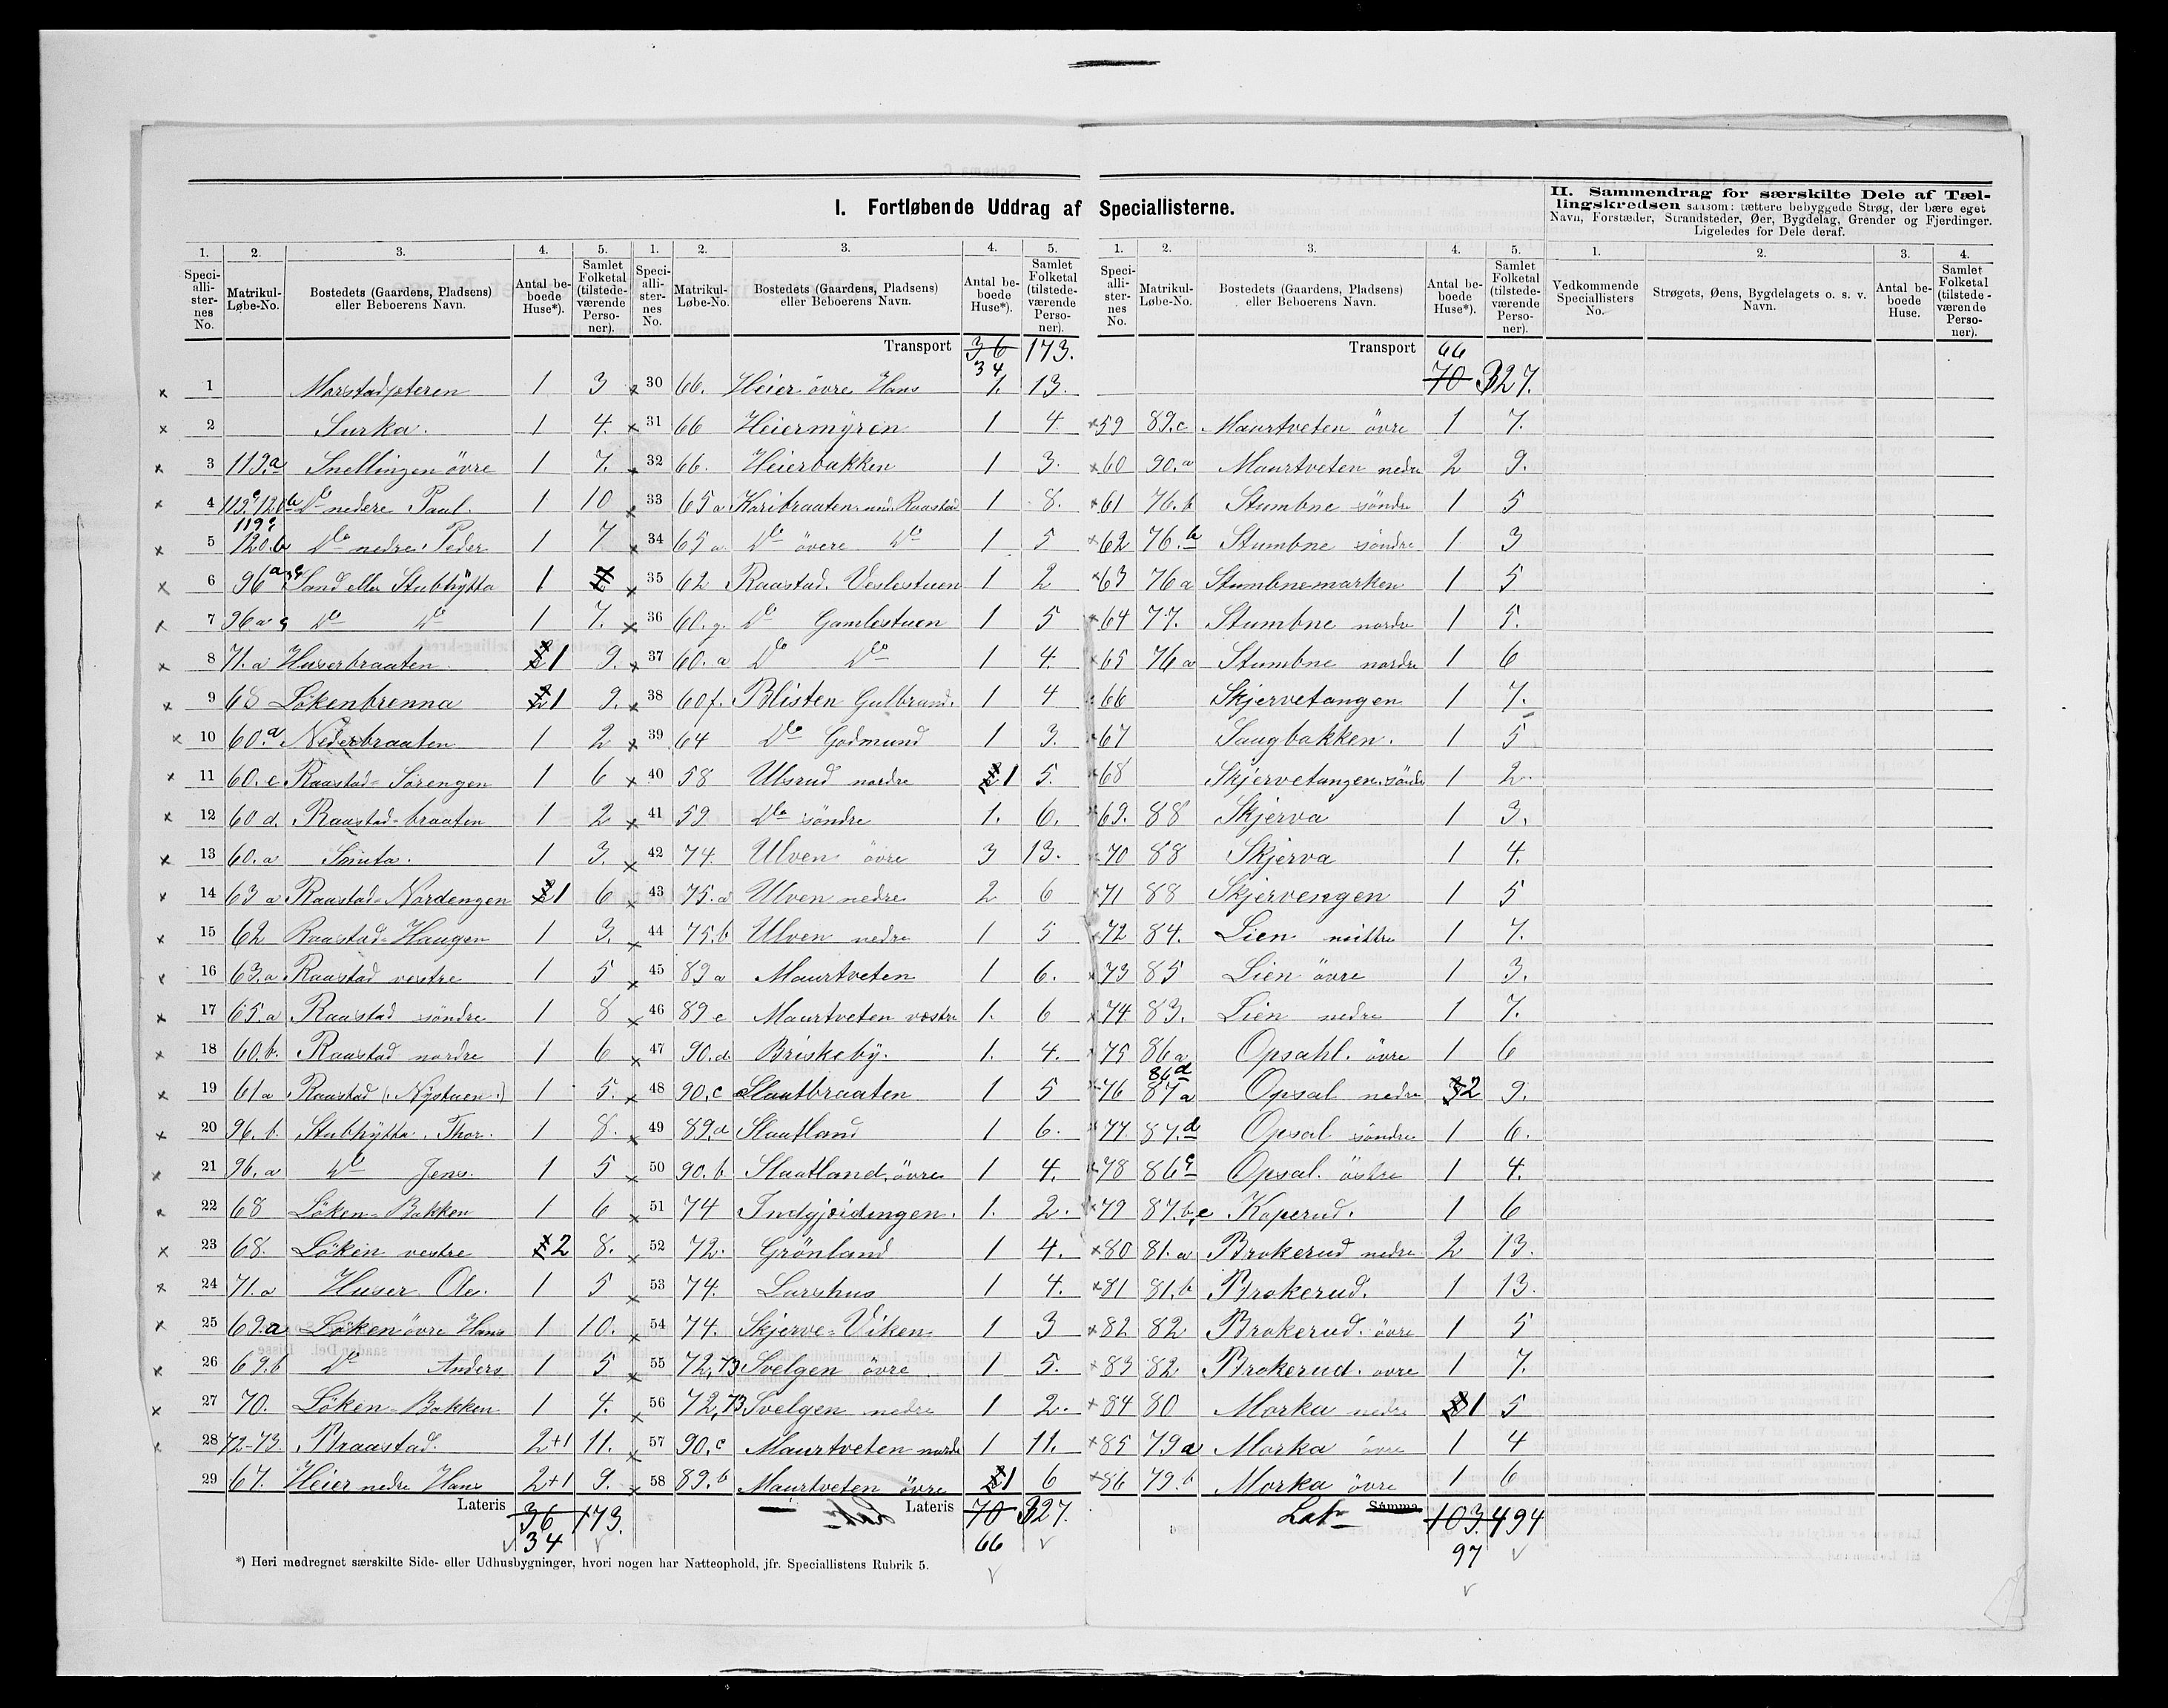 I. Fortløbende Uddrag af Speciallisterne.
II. Sammendrag for særskilte Dele af Tællingskredsen saasom: tættere bebyggede Strøg, der bære eget Navn, Forstæder, Strandsteder, Øer, Bygdelag, Grender og Fjerdinger. Ligeledes for Dele deraf.
1. 2. 3. 4. 5.
Speciallisternes No. Matrikul-Løbe-No. Bostedets (Gaardens, Pladsens) eller Beboerens Navn. Antal beboede Huse*). Samlet Folketal (tilstedeværende Personer).
1 3
2 Surka. 1 4.
3 119.a Snellingen övre 1 7.
4 Do nedere Paul. 1 10
5 119c 120.b Do nedre Peder 1 7
6 96a Sand eller Stubhÿtta 1
7 96a Do Do 1 7.
8 71.a Huserbraaten 1 9.
9 68 Lökenbrenna 1 2.
10 60.a Nederbraaten 1 2
11 60.e Raastad-Sörengen 1 6
12 60 d. Raastad-braaten 1 2
13 60.a 1 3.
14 63 a Raastad-Nordengen 1 6
15 62 Raastad-Haugen 1 3.
16 63.a Raastad vestre 1 5
17 65.a Raastad söndre 1 8
18 60.b. Raastad nordre 1 6
19 61a Raastad (Nÿstuen.) 1 5.
20 96.b. Stubhÿtta. Thor. 1 8.
21 96.a Do Jens. 1 5
22 68 Löken-Bakken 1 6
23 68. Löken vestre 2 8.
24 71.a Huser Ole. 1 5
25 69.a Löken övre Hans 1 10.
26 69.b Do Anders 1 5
27 70. Löken-Bakken 1 4.
28 72-73 Braastad. 2+1 11.
29 67. Heier nedre Hans 2+1 9.
Lateris 36 173.
34
1. 2. 3. 4. 5.
Speciallisternes No. Matrikul-Løbe-No. Bostedets (Gaardens, Pladsens) eller Beboerens Navn. Antal beboede Huse*). Samlet Folketal (tilstedeværende Personer).
Transport 36 173.
34
30 66. Heier övre Hans 1. 13.
31 66 Heiermÿren 1 4.
32 66. Heierbakken 1 3.
33 65a Karibraaten Raastad 1 8.
34 65a Do övere Do 1 5
35 62 Raastad. Veslestuen 1 2
36 60.g. Do Gamlestuen 1 5
37 60.a Do Do 1 4.
38 60f. Blisten Gulbrand. 1 4
39 64 Do Godmund 1 3.
40 58 Ulsrud nordre 1 5.
41 59 Do söndre 1. 6.
42 74. Ulven övre 3 13.
43 75.a Ulven nedre 2 6
44 75.b Ulven nedre 1 5
45 89a Maurtveten 1 6.
46 89 e Maurtveten vestre 1. 6
47 90.d. Briskebÿ. 1. 4.
48 90.c Slaatbraaten 1 5
49 89.d Slaatland 1 6.
50 90.b Slaatland. övre 1 4.
51 74 Indgjeidingen. 1. 2.
52 72. Grönland 1 4.
53 74. Larshus 1 4.
54 74. Skjerve-Viken 1 3
55 72,73 Svelgen övre 1 5.
56 72,73 Svelgen nedre 1 2.
57 90.c Maurtveten nordre 1 11.
58 89.b Maurtveten övre 1 6
Lateris 70 327.
66
*) Heri medregnet særskilte Side- eller Udhusbygninger, hvori nogen har Natteophold, jfr. Speciallistens Rubrik 5.
1. 2. 3. 4. 5.
Speciallisternes No. Matrikul-Løbe-No. Bostedets (Gaardens, Pladsens) eller Beboerens Navn. Antal beboede Huse*). Samlet Folketal (tilstedeværende Personer).
Transport 66
70 327.
59 89.c Maurtveten övre 1 7.
60 90.a Maurtveten nedre 2 9.
61 76.b Stumbne söndre 1 5
62 76.b Stumbne söndre 1 3
63 76a Stumbnemarken 1 5
64 77. Stumbne nordre 1 5.
65 76a Stumbne nordre 1 6
66 Skjervetangen 1 7.
67 Saugbakken. 1 5
68 Skjervetangen söndre 1 2.
69. 88 Skjerva 1 3.
70 88 Skjerva 1 4.
71 88 Skjervengen 1 5
72 84. Lien midtre 1 7.
73 85 Lien övre 1 3.
74 83. Lien nedre 1 7.
75 86a Opsahl. övre 1 6
76 86d 87a Opsal nedre 2 9.
77. 87.d Opsal söndre 1 6.
78 86c Opsal. östre 1 4.
79 87.b,c Koperud. 1 6
80 81.a Brokerud nedre 2 13.
81 81.b Brokerud. 1 13.
82 82 Brokerud. övre 1 5
83 82 Brokerud. övre 1 7.
84 80 Morka nedre 1 5
85 79a Morka övre 1 4
86 79.b Morka övre 1 6
Latr Summa 103. 494
97
1. 2. 3. 4.
Vedkommende Speciallisters No. Strøgets, Øens, Bygdelagets o. s. v. Navn. Antal beboede Huse. Samlet Folketal (tilstedeværende Personer).